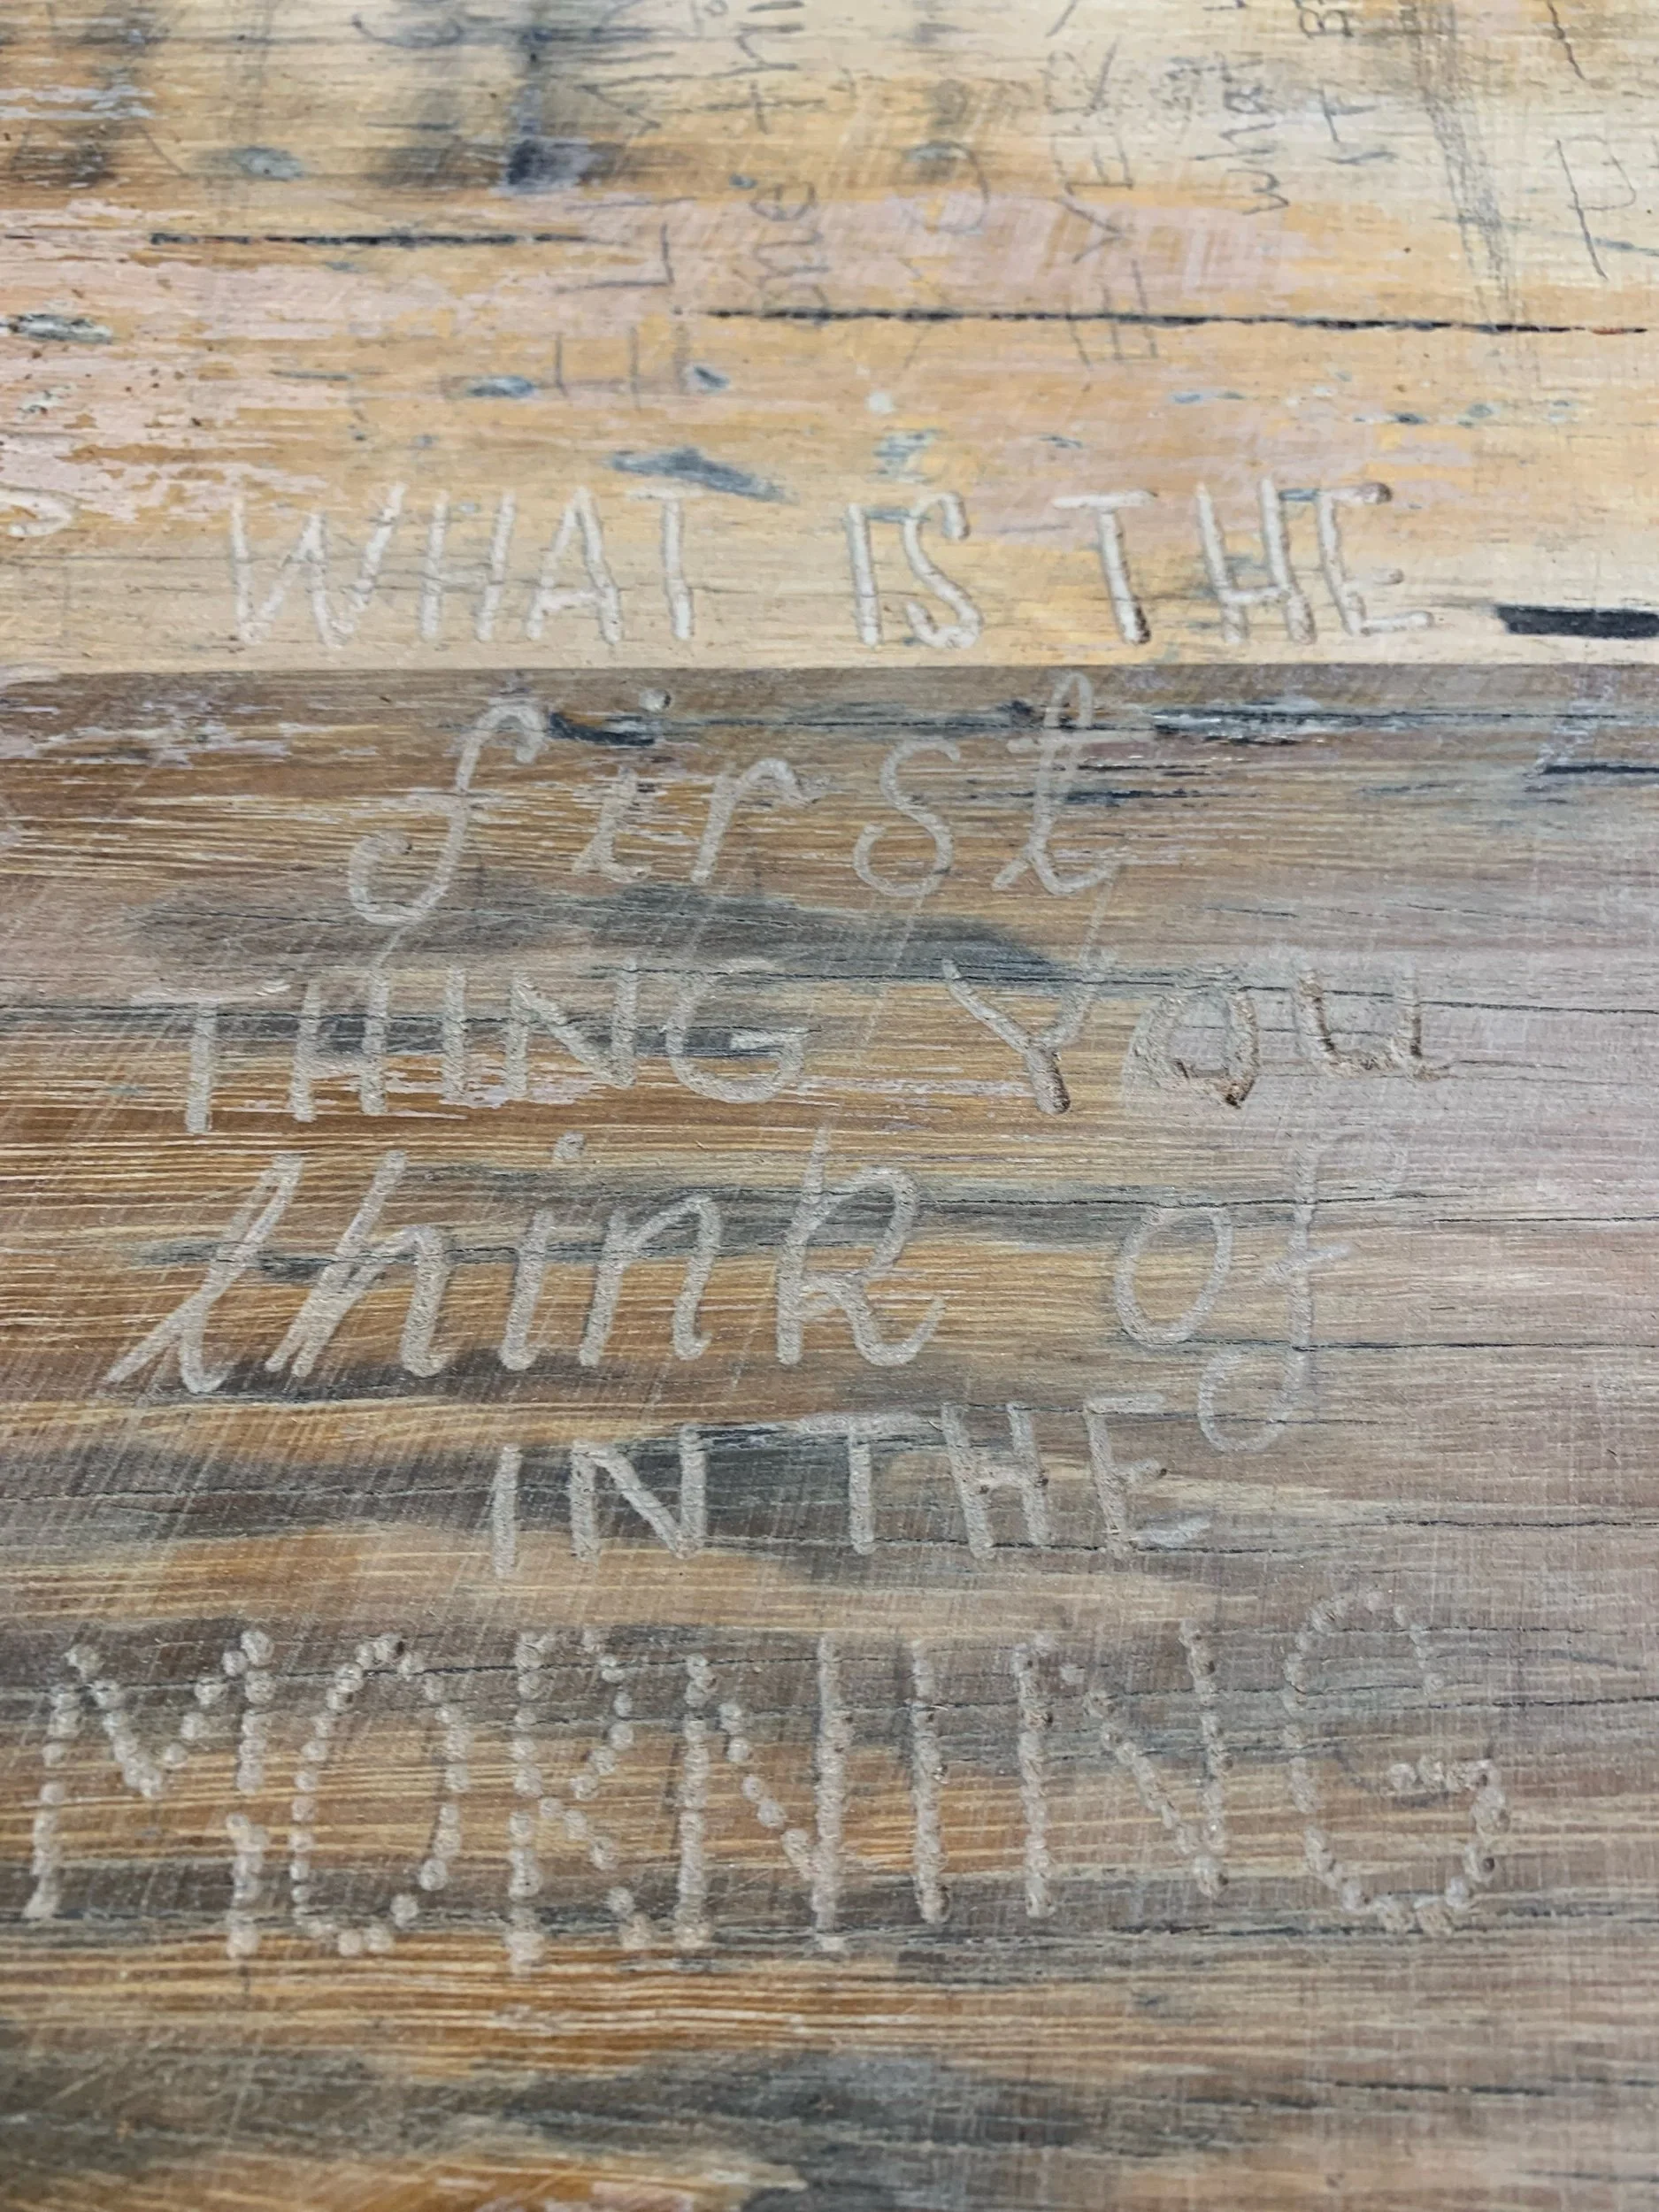 WHAT IS THE
first
THING YOU
think of
IN THE
MORNING